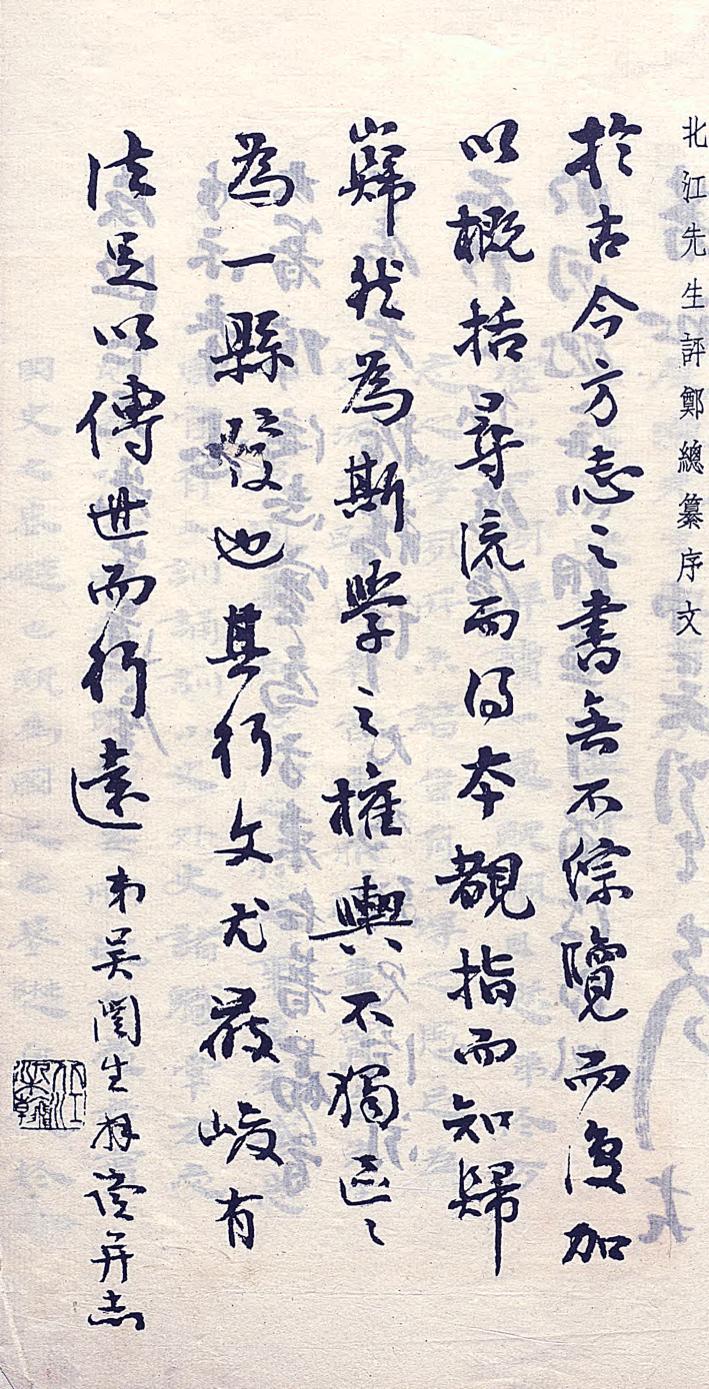 北江先生評鄭總纂序文
於古今方志之書無不綜覽而復加
以概括尋流而得本覩指而知歸
巋然為斯學之權輿不獨區〻
為一縣發也其行文尤嚴峻有
法足以傳世而行遠 弟吳闓生拜讀并志